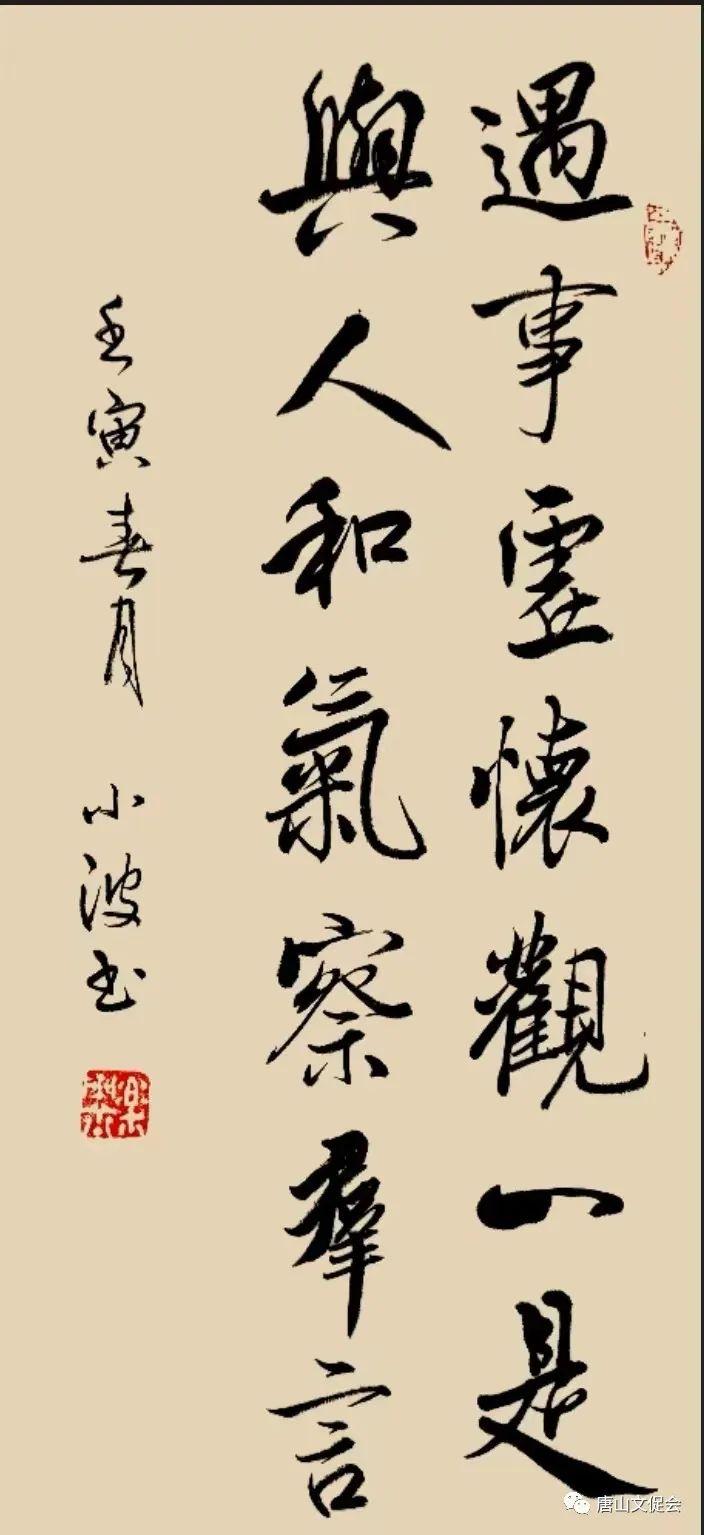 遇事虛懷觀一是
與人和氣察羣言
壬寅春月 小波书
唐山文促会